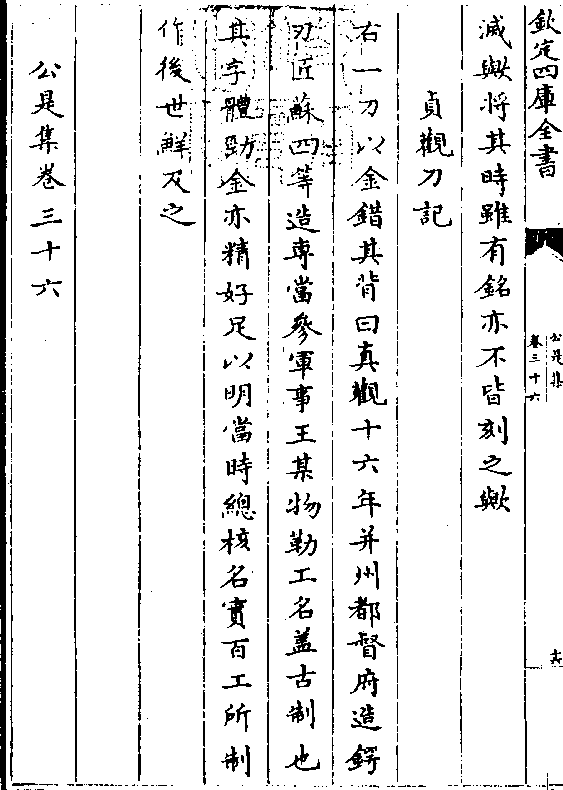 欽定四庫全書
公是集
卷三十六
減歟將其時雖有銘亦不皆刻之歟
貞觀刀記
右一刀以金錯其背曰真觀十六年并州都督府造鍔
刃匠蘇四等造専當參軍事王某物勒工名盖古制也
其字體勁金亦精好足以明當時總核名實百工所制
作後世鮮及之
公是集卷三十六